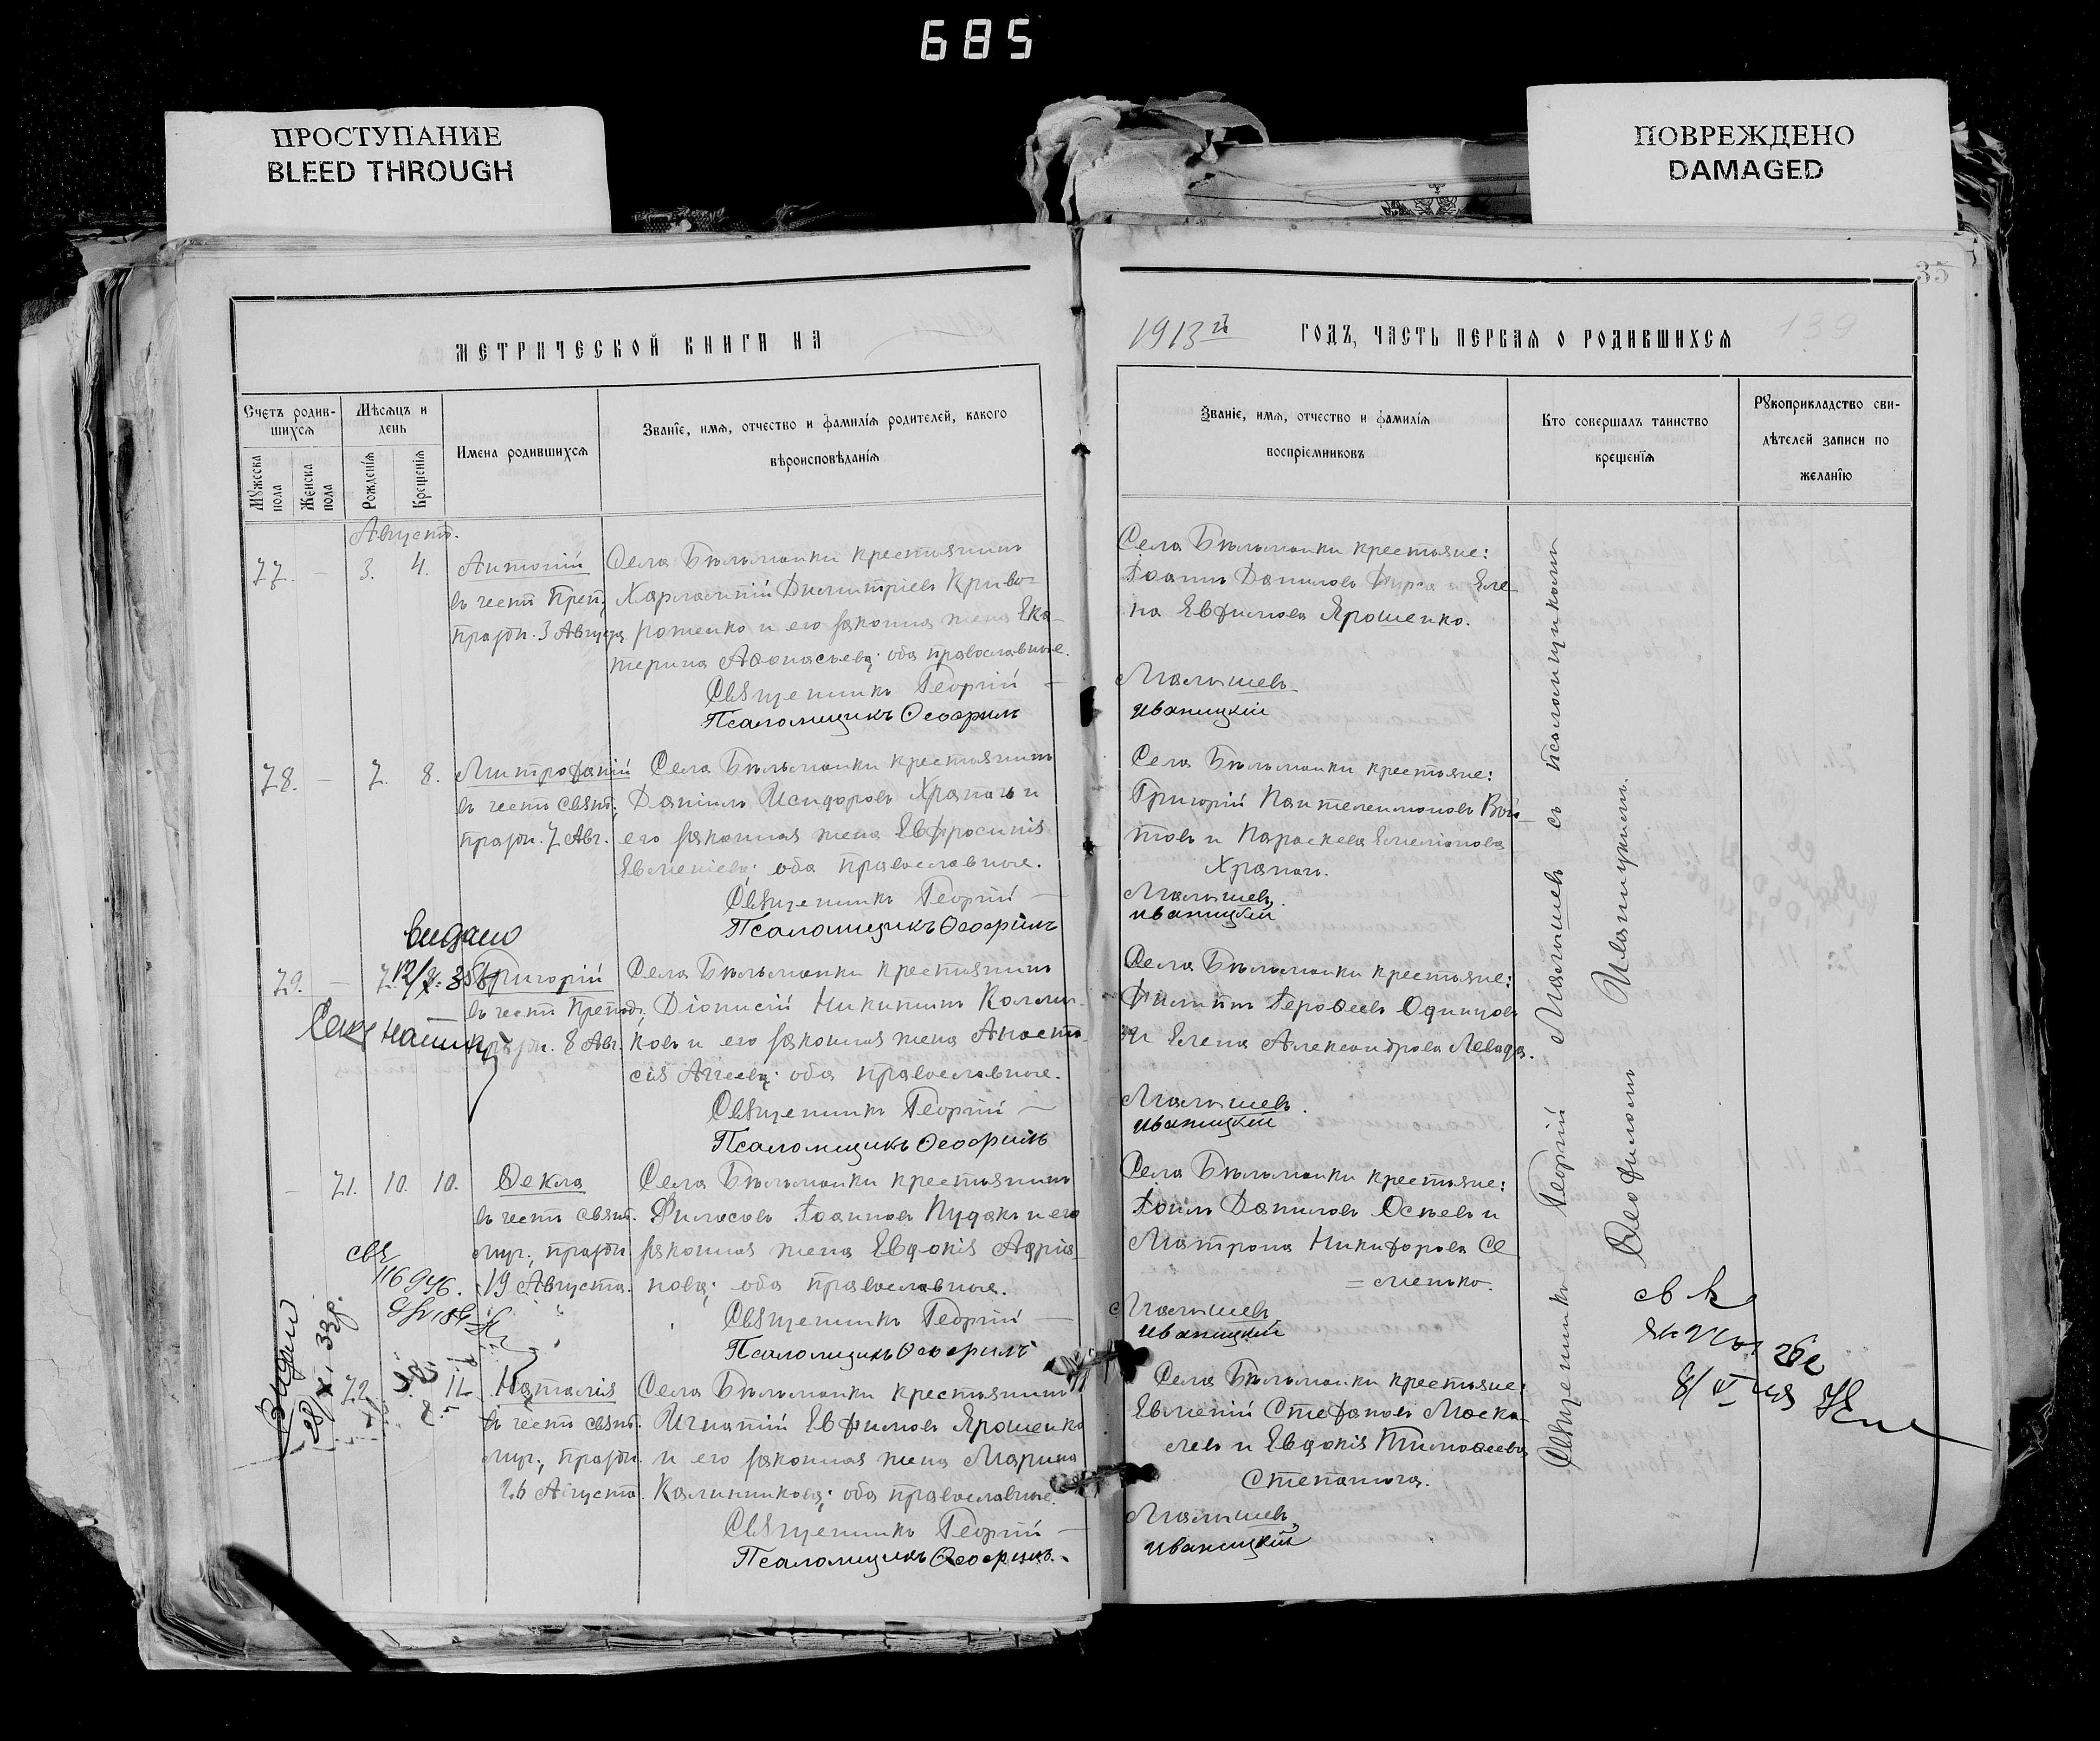 685
ПРОСТУПАНИЕ
BLEED THROUGH
ПОВРЕЖДЕНО
DAMAGED
35
МЕТРИЧЕСКОЙ КНИГИ НА
1913й ГОДЪ, ЧАСТЬ ПЕРВАЯ О РОДИВШИХСЯ
139
Счетъ родив-
шихся
Мужеска пола
Женска пола
Мѣсяцъ и
день
Рожденія
Крещенія
Имена родившихся
Званіе, имя, отчество и фамилія родителей, какого
вѣроисповѣданія
Званіе, имя, отчество и фамилія
воспріемниковъ
Кто совершалъ таинство
крещенія
Рукоприкладство сви-
дѣтелей записи по
желанію
Августъ.
77. — 3. 4.
Антоній
въ честь Преп.
празн. 3 Августа
Села Бѣльманки крестьянинъ
Харлампій Димитріевъ Криво-
ротенко и его законная жена Ека-
терина Аѳонасьева; оба православные.
Священникъ Георгій —
Псаломщикъ Ѳеофилъ
Села Бѣльманки крестьяне:
Іоаннъ Даниловъ и Еле-
на Евфимова Ярошенко.
Малышевъ
Иваницкій
78. — 7. 8.
Митрофаній
въ честь свят.,
празн. 7 Авг.
Села Бѣльманки крестьянинъ
Даніилъ Исидоровъ Храпачъ и
его законная жена Евфросинія
Евменіева; оба православные.
Священникъ Георгій —
Псаломщикъ Ѳеофилъ
Села Бѣльманки крестьяне:
Григорій Пантелеимоновъ Вой-
товъ и Параскева Емеліанова
Храпачъ.
Малышевъ
Иваницкій
видано
79. — 7.
Григорій
въ честь Препод.,
празн. 8 Авг.
Села Бѣльманки крестьянинъ
Діонисій Никитинъ Калми-
ковъ и его законная жена Анаста-
сія Аггеева; оба православные.
Священникъ Георгій —
Псаломщикъ Ѳеофилъ
Села Бѣльманки крестьяне:
Филиппъ Іероѳеевъ Одинцовъ
и Елена Александрова Левада.
Малышевъ
Иваницкій
— 71. 10. 10.
Ѳекла
въ честь свят.
муч., празн.
19 Августа.
Села Бѣльманки крестьянинъ
Іоанновъ Пудакъ и его
законная жена Евдокія Адріа-
нова; оба православные.
Священникъ Георгій —
Псаломщикъ Ѳеофилъ
Села Бѣльманки крестьяне:
Іоиль Даниловъ Осѣевъ и
Матрона Никифорова Се
= менько.
Малышевъ
Иваницкій
116946.
Видано
28/X. 33р.
72.
Наталія
въ честь свят.
муч., празн.
26 Августа.
Села Бѣльманки крестьянинъ
Игнатій Евфимовъ Ярошенко
и его законная жена Марина
Калинникова; оба православные.
Священникъ Георгій —
Псаломщикъ Ѳеофилъ
Села Бѣльманки крестьяне:
Евменій Стефановъ Моска-
левъ и Евдокія Тимоѳеева
Степанова.
Малышевъ
Иваницкій
Священникъ Георгій Малышевъ съ псаломщикомъ
Ѳеофиломъ Иваницкимъ.